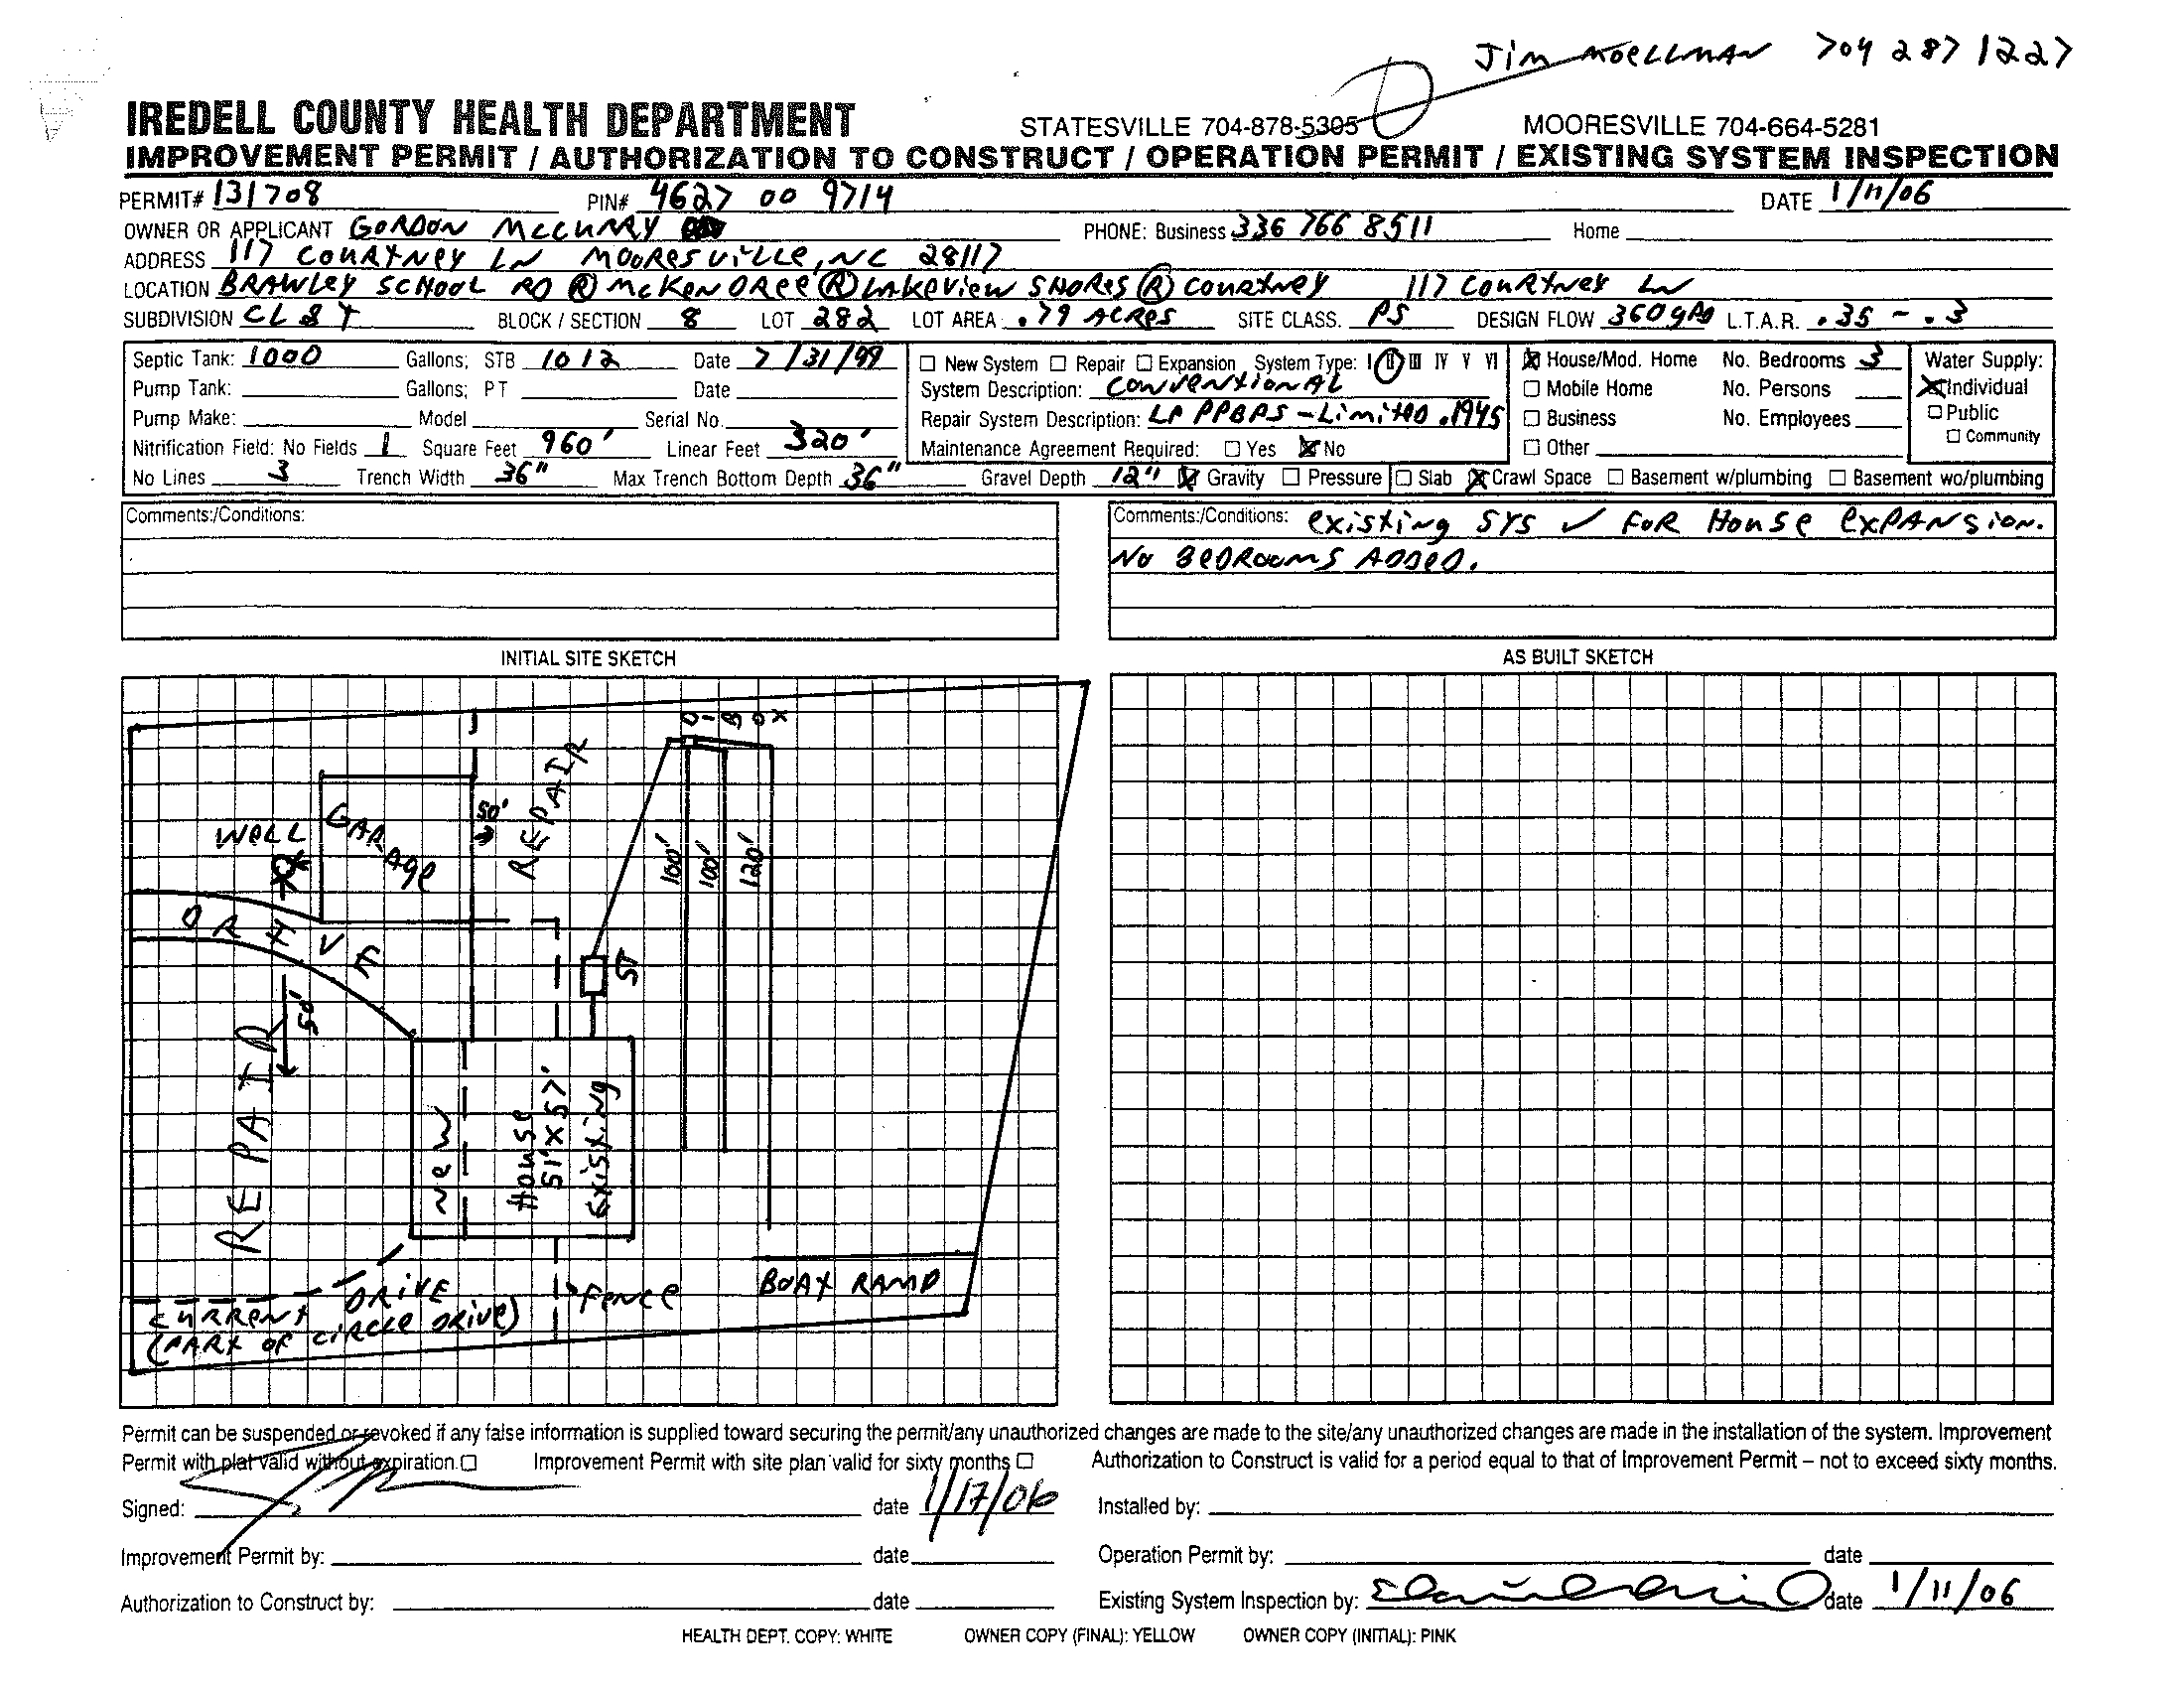 Jim MOELLMAN 704 287 1227
IREDELL COUNTY HEALTH DEPARTMENT
STATESVILLE 704-878-5305 MOORESVILLE 704-664-5281
IMPROVEMENT PERMIT / AUTHORIZATION TO CONSTRUCT / OPERATION PERMIT / EXISTING SYSTEM INSPECTION
PERMIT# 131708 PIN# 4627 00 9714 DATE 1/11/06
OWNER OR APPLICANT GORDON McCURRY PHONE: Business 336 766 8511 Home
ADDRESS 117 COURTNEY LN MOORESVILLE, NC 28117
LOCATION BRAWLEY SCHOOL RD Ⓡ McKENDREE Ⓡ LAKEVIEW SHORES Ⓡ COURTNEY 117 COURTNEY LN
SUBDIVISION CL&Y BLOCK / SECTION 8 LOT 282 LOT AREA .79 ACRES SITE CLASS. PS DESIGN FLOW 360gPD L.T.A.R. .35 - .3
Septic Tank: 1000 Gallons; STB 1012 Date 7/31/99 ☐ New System ☐ Repair ☐ Expansion System Type: I II III IV V VI ☒ House/Mod. Home No. Bedrooms 3 Water Supply:
Pump Tank: Gallons; PT Date System Description: CONVENTIONAL ☐ Mobile Home No. Persons ☒ Individual
Pump Make: Model Serial No. Repair System Description: LP PPBPS - Limited .1945 ☐ Business No. Employees ☐ Public
Nitrification Field: No Fields 1 Square Feet 960' Linear Feet 320' Maintenance Agreement Required: ☐ Yes ☒ No ☐ Other ☐ Community
No Lines 3 Trench Width 36" Max Trench Bottom Depth 36" Gravel Depth 12" ☒ Gravity ☐ Pressure ☐ Slab ☒ Crawl Space ☐ Basement w/plumbing ☐ Basement wo/plumbing
Comments:/Conditions:
Comments:/Conditions: existing SYS ✓ FOR House EXPANSION.
NO BEDROOMS ADDED.
INITIAL SITE SKETCH
AS BUILT SKETCH
D-BOX
REPAIR
50'
WELL
GARAGE
100'
100'
120'
DRIVE
ST
50'
REPAIR
NEW
House
51' x 57'
Existing
CURRENT DRIVE
(PART OF CIRCLE DRIVE)
FENCE
BOAT RAMP
Permit can be suspended or revoked if any false information is supplied toward securing the permit/any unauthorized changes are made to the site/any unauthorized changes are made in the installation of the system. Improvement
Permit with plat valid without expiration. ☐ Improvement Permit with site plan valid for sixty months ☐ Authorization to Construct is valid for a period equal to that of Improvement Permit – not to exceed sixty months.
Signed: date 1/17/06 Installed by:
Improvement Permit by: date Operation Permit by: date
Authorization to Construct by: date Existing System Inspection by: date 1/11/06
HEALTH DEPT. COPY: WHITE OWNER COPY (FINAL): YELLOW OWNER COPY (INITIAL): PINK